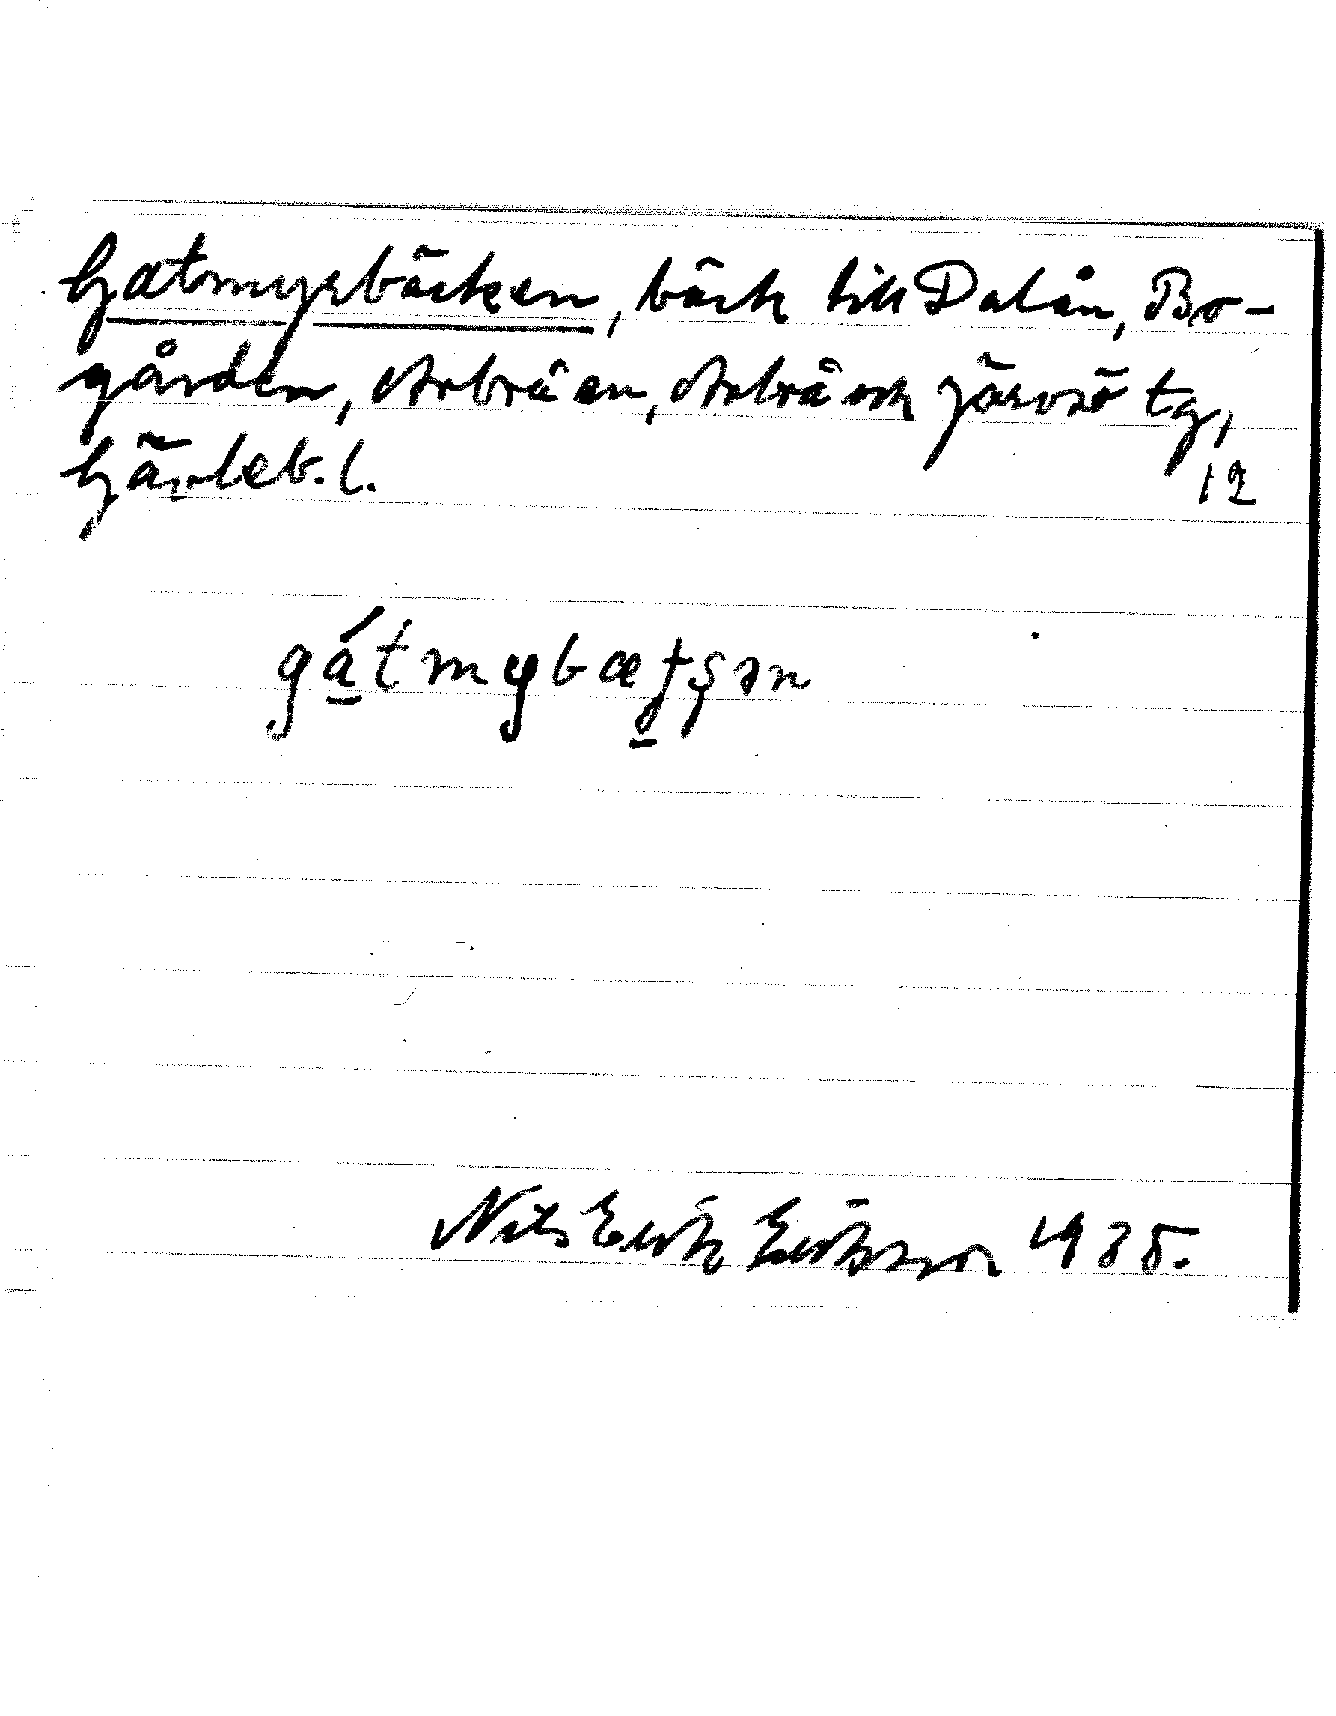 Gatmyrbäcken, bäck till Dalån, Bo-
gården, Arbrå sn, Arbrå och Järvsö tg,
Gävleb. l. 12
gátmybæt̯şən
Nils Erik Eriksson 1935.